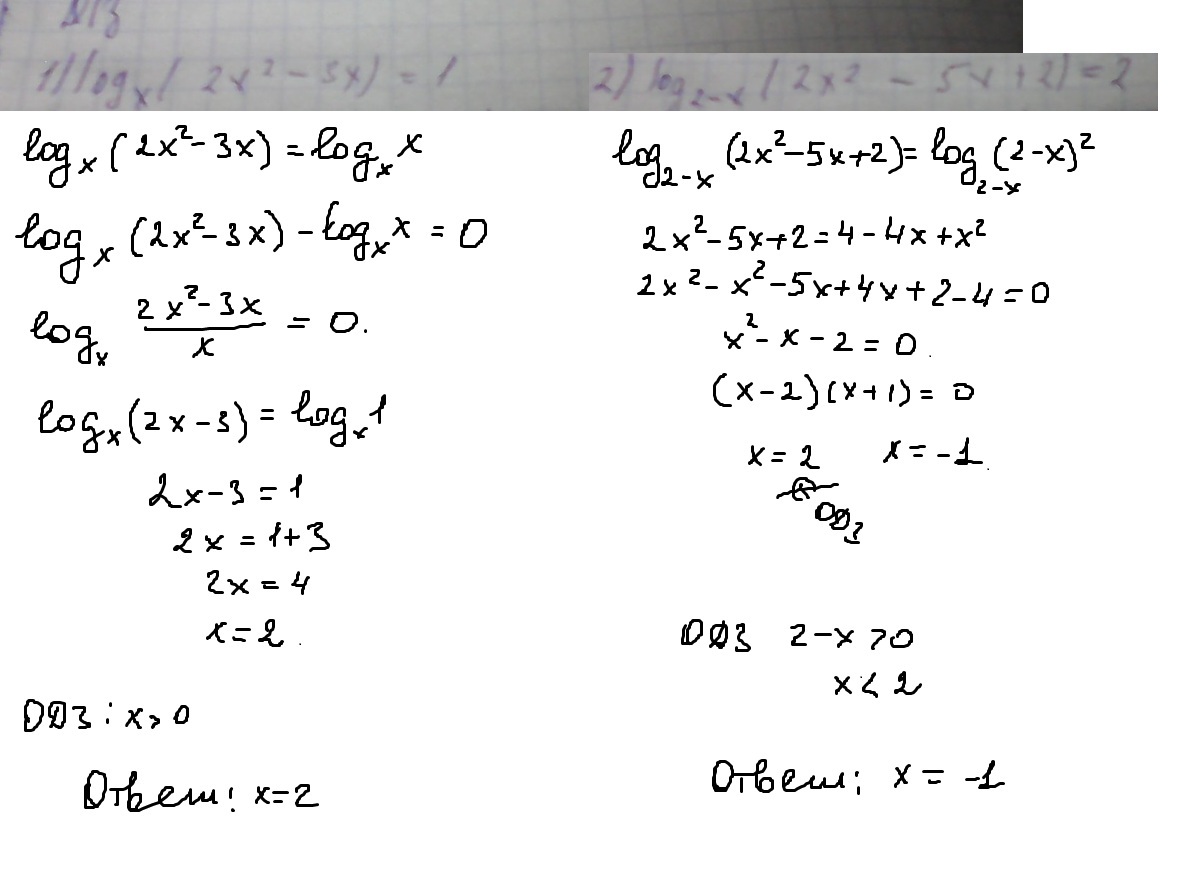 ДЗ
1) log_x(2x² - 3x) = 1
log_x(2x² - 3x) = log_x x
log_x(2x² - 3x) - log_x x = 0
log_x (2x² - 3x)/x = 0.
log_x(2x - 3) = log_x 1
2x - 3 = 1
2x = 1 + 3
2x = 4
x = 2.
ОДЗ: x > 0
Ответ: x = 2
2) log_{2-x}(2x² - 5x + 2) = 2
log_{2-x}(2x² - 5x + 2) = log_{2-x}(2 - x)²
2x² - 5x + 2 = 4 - 4x + x²
2x² - x² - 5x + 4x + 2 - 4 = 0
x² - x - 2 = 0.
(x - 2)(x + 1) = 0
x = 2 x = -1.
ОДЗ
ОДЗ 2 - x > 0
x < 2
Ответ: x = -1